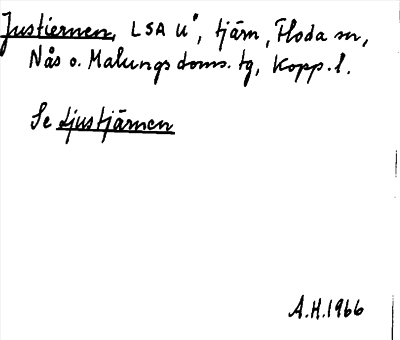 Justiernen, LSA U°, tjärn, Floda sn,
Nås o. Malungs doms. tg, Kopp. l.
Se Ljustjärnen
A.H. 1966